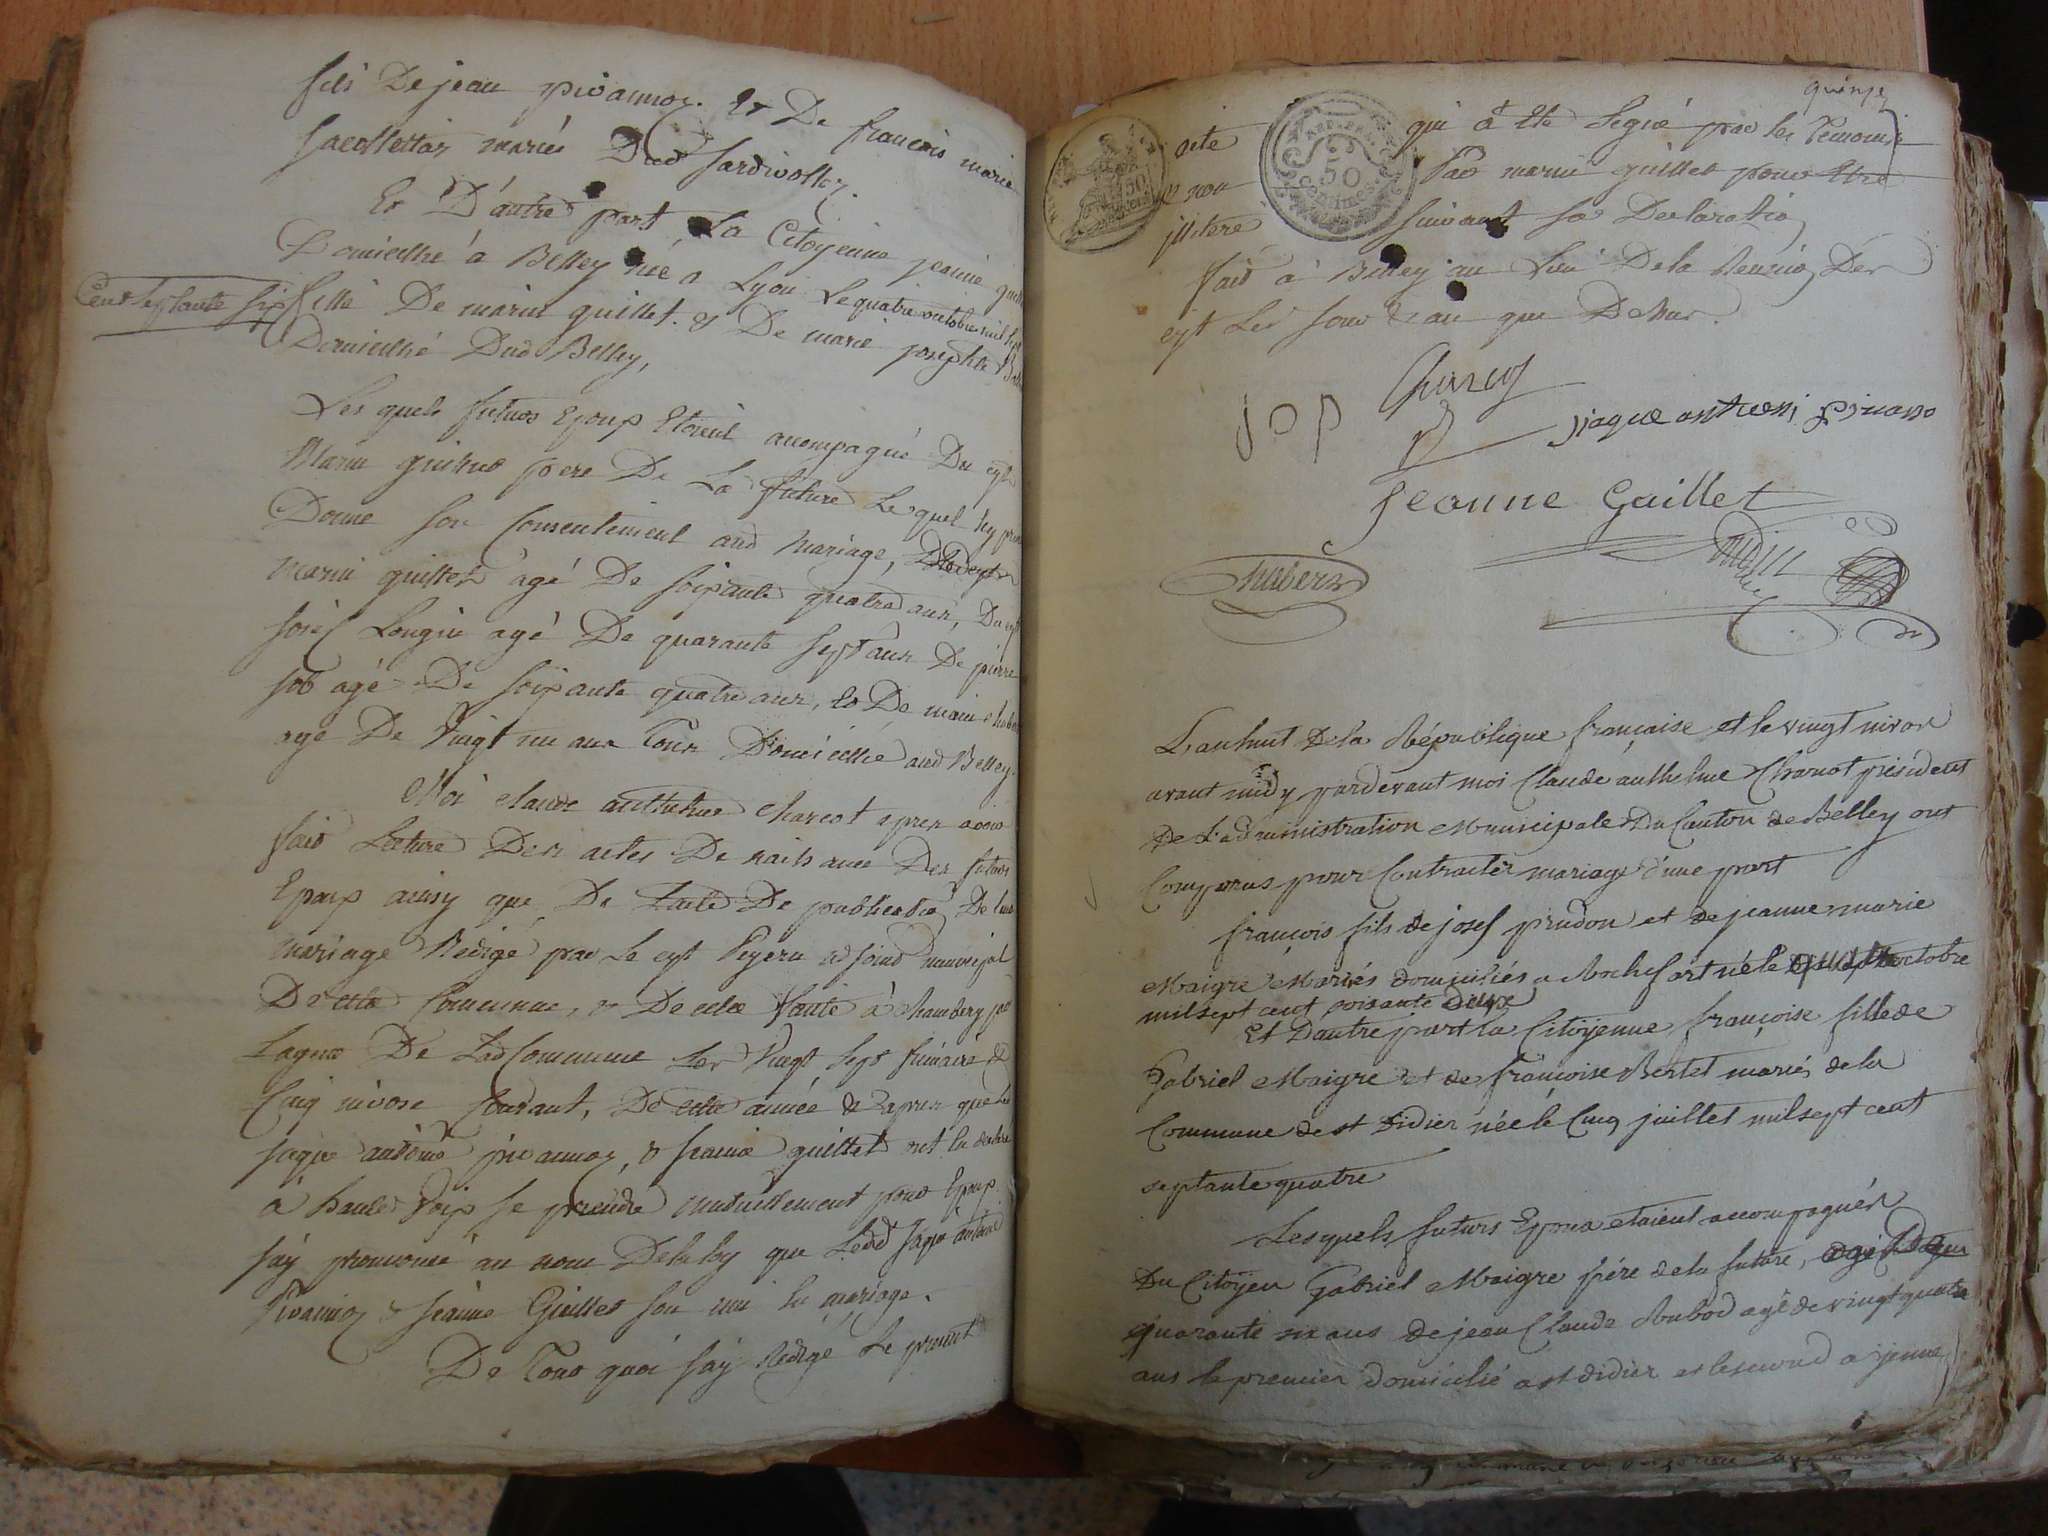 fils De jean pivannoz. Et De francois marie
mariés Dud
Et D'autre part, La Citoyenne jeanne
Domicilié à Belley née a Lyon Le quatre octobre mil sept
Cent septante six
fille De marin guillet. & De marie josephte
Domicilié Dud Belley,
Les quels futurs Epoux Etoient accompagné Du cyt
Marin père De La future Le quel
Donne son Consentement aud Mariage,
marin guillet agé De soixante quatre ans, Du cyt
Longin agé De quarante sept ans De pierre
agé De soixante quatre ans, et De
agé De Vingt un ans Tous Domicilié aud Belley.
Moi claude anthelme Charcot apres avoir
fait Lecture Des actes De naissance Des futurs
Epoux ainsy que De Lacte De publication De leur
mariage Redigé par Le cyt adjoint municipal
De cette Commune, & De celle faite à Chambery par
Lagent De Lad Commune Les Vingt sept frimaire &
Cinq nivose Courant, De cette année & apres que Led
jaque antoine pivannoz, & jeanne guillet ont
à haute Voix se prendre mutuellement pour Epoux
jay prononcé au nom De la loy que Led jaque antoine
Pivannoz & jeanne Guillet son uni En mariage.
De Tout quoi jay Redigé Le present
quinze
acte qui a Ete Signé par les Temoins
& non par marin guillet pour Etre
illitere suivant sa Declaration
50
Centimes
Fait à Belley au Lieu De la Reunion Des
cyt Les jour & an que Dessus.
j o p
jiaque antueni pivano
Jeanne Guillet
Chaberr
L'an huit de la République française et le vingt nivos
avant midy pardevant moi Claude anthelme Charcot président
de L'administration Municipale Du Canton de Belley ont
Comparus pour Contracter mariage d'une part
françois fils de josef prudon et de jeanne marie
Maigre Mariés domiciliés a Rochefort né le octobre
mil sept cent soisante deux
Et Dautre part la Citöyenne françoise fille de
Gabriel Maigre et de françoise Bertet mariés de la
Commune de st didier née le Cinq juillet mil sept cent
septante quatre
Lesquels futurs Epoux etaient accompagnés
Du Citoÿen Gabriel Maigre pére de la future, agé De
quarante six ans de jean Claude Rubod agé de vingt quatre
ans le premier domicilié a st didier et le second a yenne